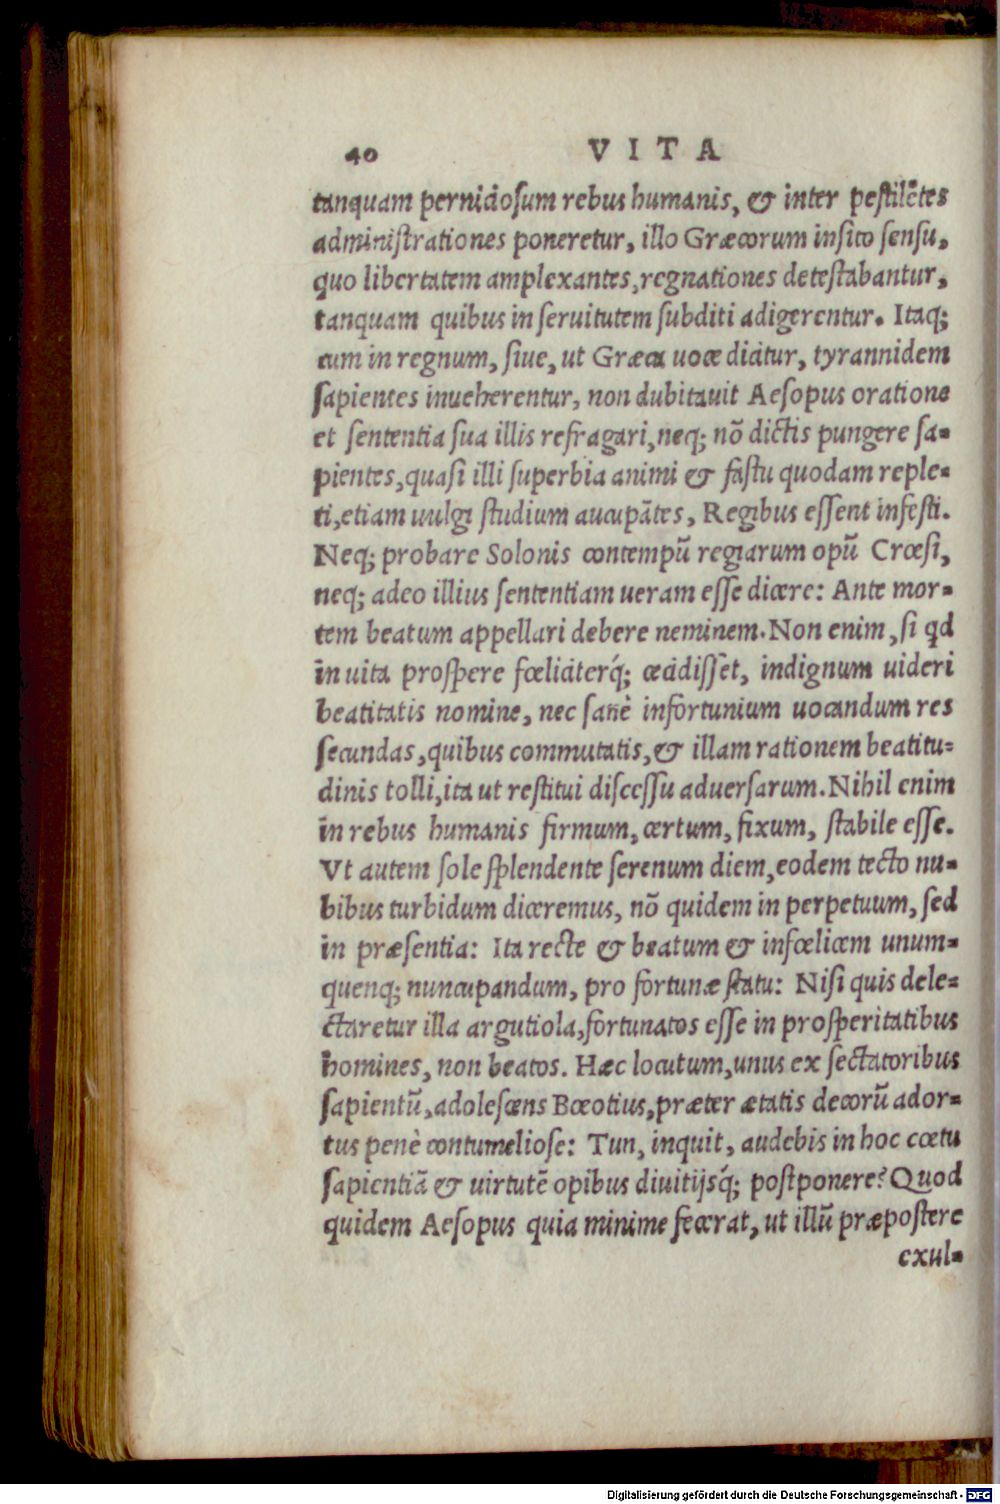 40 VITA
tanquam perniciosum rebus humanis, & inter pestilẽtes
administrationes poneretur, illo Græcorum insito sensu,
quo libertatem amplexantes, regnationes detestabantur,
tanquam quibus in seruitutem subditi adigerentur. Itaq;
cum in regnum, siue, ut Græca uoce dicitur, tyrannidem
sapientes inueherentur, non dubitauit Aesopus oratione
et sententia sua illis refragari, neq; nõ dictis pungere sa=
pientes, quasi illi superbia animi & fastu quodam reple=
ti, etiam uulgi studium aucupãtes, Regibus essent infesti.
Neq; probare Solonis contempũ regiarum opũ Crœsi,
neq; adeo illius sententiam ueram esse dicere: Ante mor=
tem beatum appellari debere neminem. Non enim, si qd
in uita prospere fœliciterq́; cecidisset, indignum uideri
beatitatis nomine, nec sanè infortunium uocandum res
secundas, quibus commutatis, & illam rationem beatitu=
dinis tolli, ita ut restitui discessu aduersarum. Nihil enim
in rebus humanis firmum, certum, fixum, stabile esse.
Vt autem sole splendente serenum diem, eodem tecto nu=
bibus turbidum diceremus, nõ quidem in perpetuum, sed
in præsentia: Ita recte & beatum & infœlicem unum=
quenq; nuncupandum, pro fortunæ statu: Nisi quis dele=
ctaretur illa argutiola, fortunatos esse in prosperitatibus
homines, non beatos. Hæc locutum, unus ex sectatoribus
sapientũ, adolescens Bœotius, præter ætatis decorũ ador=
tus penè contumeliose: Tun, inquit, audebis in hoc cœtu
sapientiã & uirtutẽ opibus diuitijsq́; postponere? Quod
quidem Aesopus quia minime fecerat, ut illũ præpostere
exul=
Digitalisierung gefördert durch die Deutsche Forschungsgemeinschaft - DFG